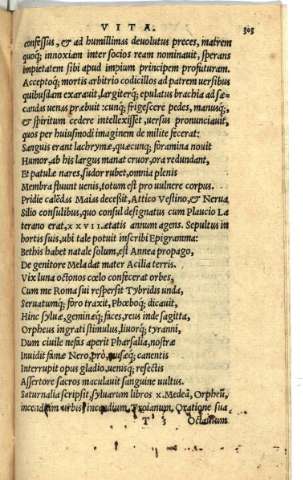 VITA. 303
confessus, & ad humillimas deuolutus preces, matrem
quoq; innoxiam inter socios ream nominauit, sperans
impietatem sibi apud impium principem profuturam.
Acceptoq; mortis arbitrio codicillos ad patrem uersibus
quibusdam exarauit, largiterq; epulatus brachia ad se-
candas uenas præbuit: cunq; frigescere pedes, manusq;,
& spiritum cedere intellexisset, uersus pronunciauit,
quos per huiusmodi imaginem de milite fecerat:
Sanguis erant lachrymæ, quæcunq; foramina nouit
Humor, ab his largus manat cruor, ora redundant,
Et patulæ nares, sudor rubet, omnia plenis
Membra fluunt uenis, totum est pro uulnere corpus.
Pridie calēdas Maias decessit, Attico Vestino, & Nerua
Silio consulibus, quo consul designatus cum Plaucio La
terano erat, xxvii. ætatis annum agens. Sepultus in
hortis suis, ubi tale potuit inscribi Epigramma:
Bethis habet natale solum, est Annea propago,
De genitore Mela dat mater Acilia terris.
Vix luna octonos cœlo confecerat orbes,
Cum me Roma sui respersit Tybridis unda,
Seruatumq; foro traxit, Phœboq; dicauit,
Hinc syluæ, geminæq; faces, reus inde sagitta,
Orpheus ingrati stimulus, liuorq; tyranni,
Dum ciuile nefas aperit Pharsalia, nostræ
Inuidit famæ Nero, pro, musæq; canentis
Interrupit opus gladio, uenisq; resectis
Assertore sacros maculauit sanguine uultus.
Saturnalia scripsit, syluarum libros x. Medeā, Orpheū,
incendium urbis, incendium Troianum, Oratione sua
T 3 Octauium